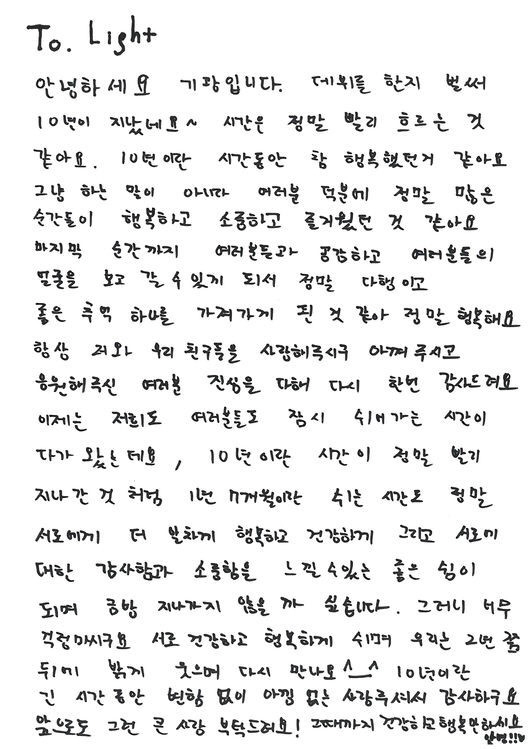 To. Light
안녕하세요 기광입니다. 데뷔를 한지 벌써
10년이 지났네요~ 시간은 정말 빨리 흐르는 것
같아요. 10년이란 시간동안 참 행복했던거 같아요
그냥 하는 말이 아니라 여러분 덕분에 정말 많은
순간들이 행복하고 소중하고 즐거웠던 것 같아요
마지막 순간까지 여러분들과 공감하고 여러분들의
얼굴을 보고 갈 수 있게 되서 정말 다행이고
좋은 추억 하나를 가져가게 된 것 같아 정말 행복해요
항상 저와 우리 친구들을 사랑해주시구 아껴주시고
응원해주신 여러분 진심을 다해 다시 한번 감사드려요
이제는 저희도 여러분들도 잠시 쉬어가는 시간이
다가 왔는데요, 10년이란 시간이 정말 빨리
지나간 것 처럼 1년 7개월이란 쉬는 시간도 정말
서로에게 더 알차게 행복하고 건강하게 그리고 서로에
대한 감사함과 소중함을 느낄 수 있는 좋은 쉼이
되며 금방 지나가지 않을 까 싶습니다. 그러니 너무
걱정마시구요 서로 건강하고 행복하게 쉬며 우리는 2년 쯤
뒤에 밝게 웃으며 다시 만나요^_^ 10년이란
긴 시간동안 변함 없이 아낌 없는 사랑주셔서 감사하구요
앞으로도 그런 큰 사랑 부탁드려요! 그때까지 건강하고 행복만하시요
안녕!!♥